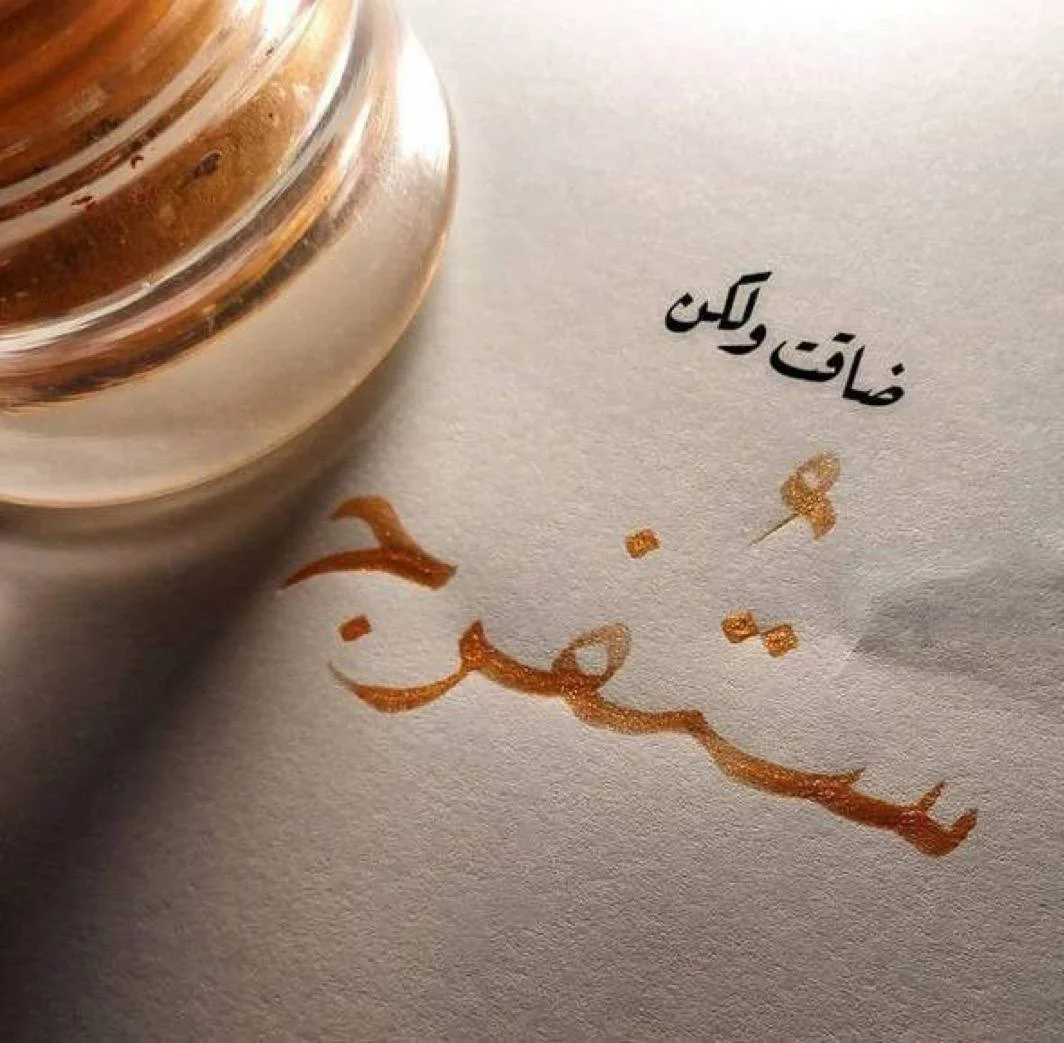 ضاقت ولكن
ستُفرج